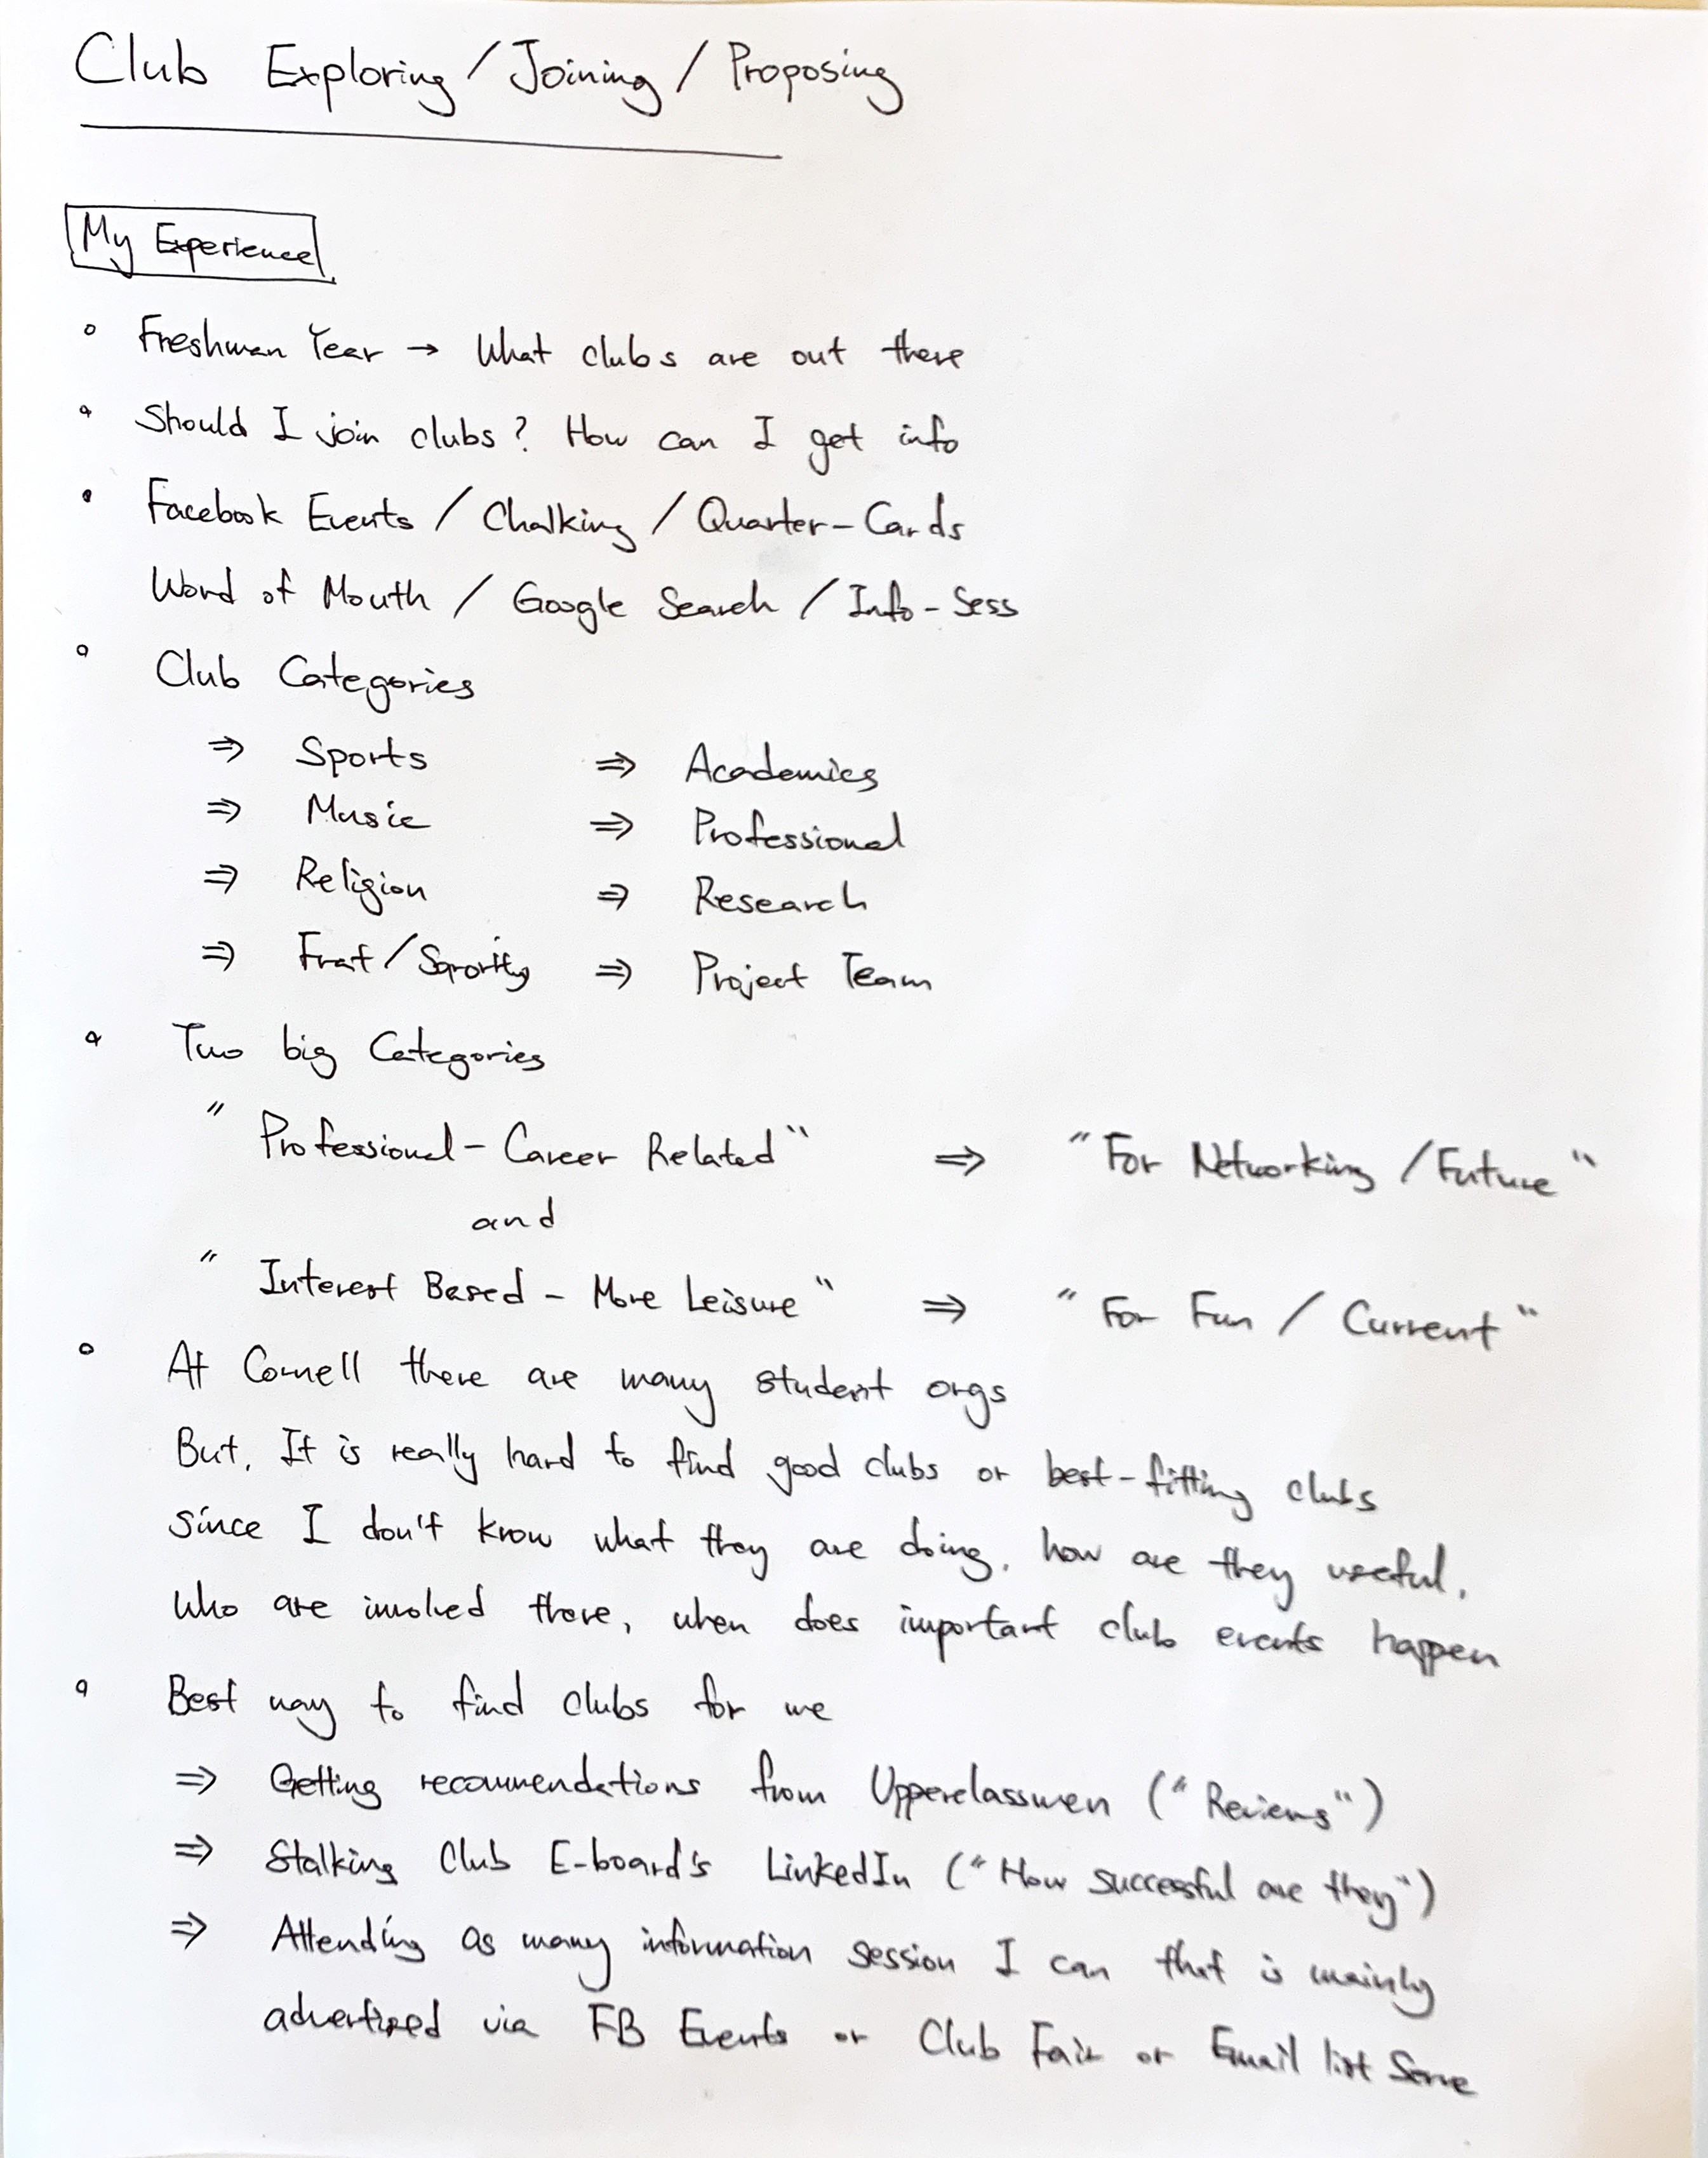 Club Exploring / Joining / Proposing
My Experience
° Freshman Year → What clubs are out there
° Should I join clubs? How can I get info
• Facebook Events / Chalking / Quarter-Cards
Word of Mouth / Google Search / Info-Sess
° Club Categories
⇒ Sports ⇒ Academics
⇒ Music ⇒ Professional
⇒ Religion ⇒ Research
⇒ Frat/Sorority ⇒ Project Team
° Two big Categories
"Professional - Career Related" ⇒ "For Networking / Future"
and
"Interest Based - More Leisure" ⇒ "For Fun / Current"
° At Cornell there are many student orgs
But, It is really hard to find good clubs or best-fitting clubs
since I don't know what they are doing, how are they useful,
who are involved there, when does important club events happen
° Best way to find clubs for me
⇒ Getting recommendations from Upperclassmen ("Reviews")
⇒ Stalking Club E-board's LinkedIn ("How successful are they")
⇒ Attending as many information session I can that is mainly
advertized via FB Events or Club Fair or Email list Serve